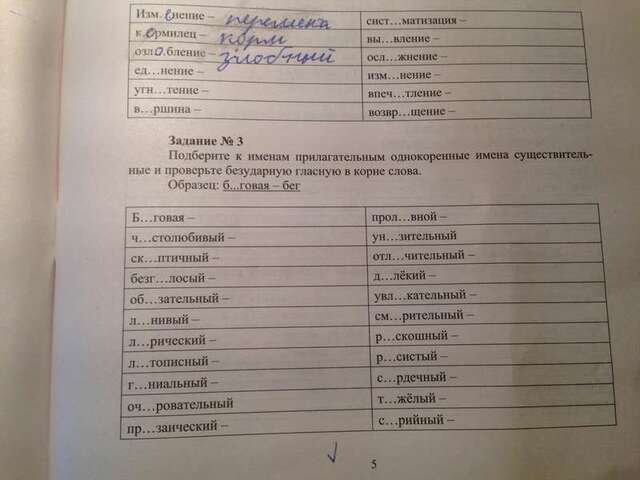 Изм.енение – перемена
сист…матизация –
к.ормилец – корм
вы…вление –
озл.о.бление – злобный
осл…жнение –
ед…нение –
изм…нение –
угн…тение –
впеч…тление –
в…ршина –
возвр…щение –
Задание № 3
Подберите к именам прилагательным однокоренные имена существитель-
ные и проверьте безударную гласную в корне слова.
Образец: б...говая – бег
Б…говая –
прол…вной –
ч…столюбивый –
ун…зительный
ск…птичный –
отл…чительный –
безг…лосый –
д…лёкий –
об…зательный –
увл…кательный –
л…нивый –
см…рительный –
л…рический –
р…скошный –
л…тописный –
р…систый –
г…ниальный –
с…рдечный –
оч…ровательный
т…жёлый –
пр…заический –
с…рийный –
5